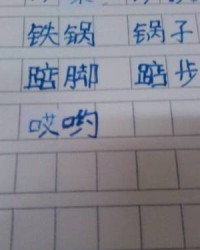 铁锅 锅子
踮脚 踮步
哎哟